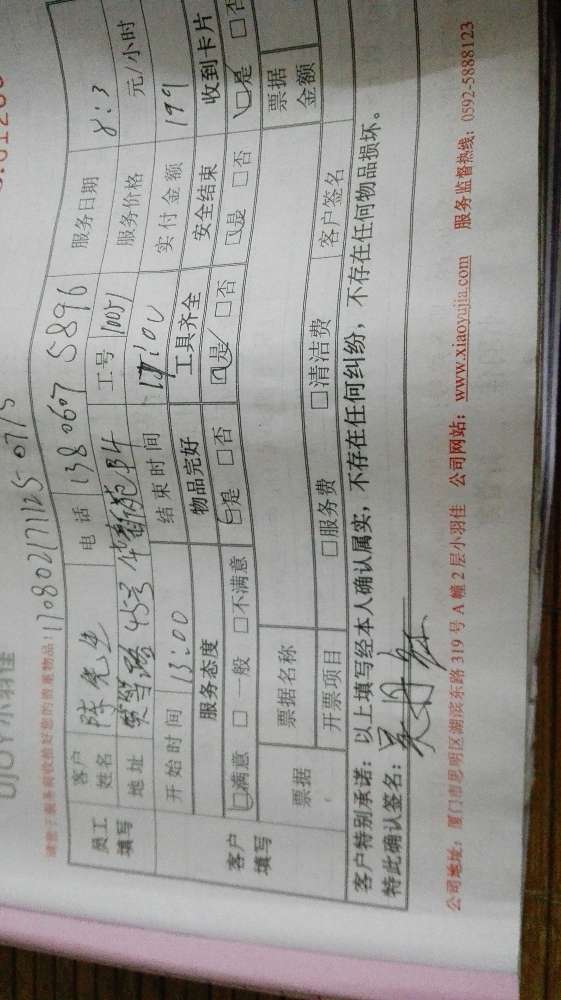 UJOY小羽佳
请您了服务前收拾好您的贵重物品!
170802171125 0715
员工填写 客户姓名 陈先生 电话 138 0607 5896 服务日期 8:3
地址 45号 工号 10051 服务价格 元/小时
开始时间 13:00 结束时间 17:00 实付金额 199
客户填写 服务态度 物品完好 工具齐全 安全结束 收到卡片
☑满意 □一般 □不满意 ☑是 □否 ☑是 □否 ☑是 □否 ☑是 □否
票据 票据名称 票据金额
开票项目 □服务费 □清洁费 客户签名
客户特别承诺:以上填写经本人确认属实,不存在任何纠纷,不存在任何物品损坏。
特此确认签名:
公司地址:厦门市思明区湖滨东路319号A幢2层小羽佳 公司网站:www.xiaoyujia.com 服务监督热线:0592-5888123